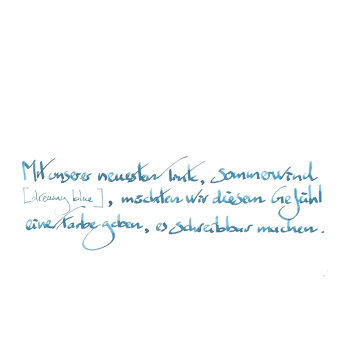 Mit unserer neuesten Tinte, Sommerwind
[dreamy blue], möchten wir diesem Gefühl
eine Farbe geben, es schreibbar machen.